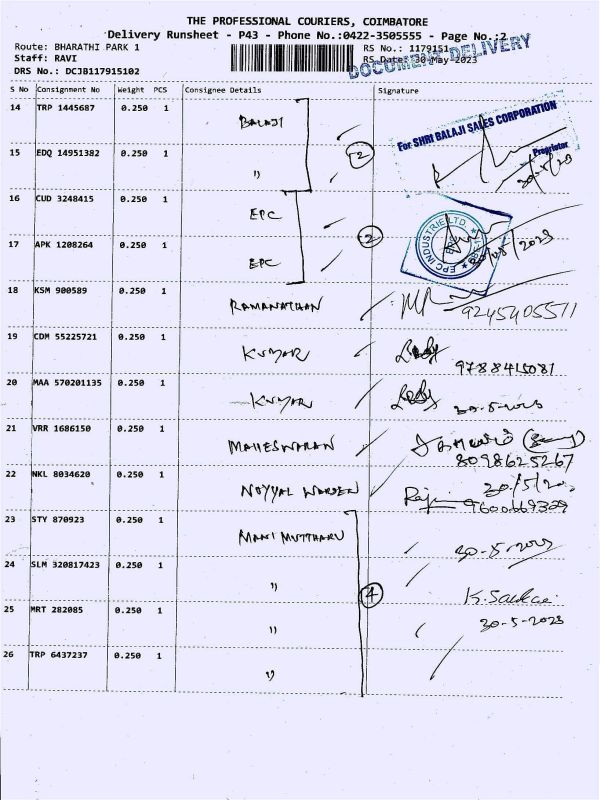 THE PROFESSIONAL COURIERS, COIMBATORE
Delivery Runsheet - P43 - Phone No.:0422-3505555 - Page No.:2
Route: BHARATHI PARK 1
RS No.: 1179151
Staff: RAVI
RS Date: 30-May-2023
DOCUMENT DELIVERY
DRS No.: DCJB117915102
S No Consignment No Weight PCS Consignee Details Signature
14 TRP 1445687 0.250 1 BALAJI
For SHRI BALAJI SALES CORPORATION
Proprietor
15 EDQ 14951382 0.250 1 " 2
16 CUD 3248415 0.250 1 EPC
EPC INDUSTRIE LTD.
17 APK 1208264 0.250 1 EPC 2
18 KSM 900589 0.250 1 RAMANATHAN 9245405571
19 CDM 55225721 0.250 1 KUMAR 9788415081
20 MAA 570201135 0.250 1 KUMAR 30-5-2023
21 VRR 1686150 0.250 1 MAHESWARAN 8098625267
22 NKL 8034620 0.250 1 NOYYAL WARDEN 9600669329
23 STY 870923 0.250 1 MANI MUTTHARU 30-5-2023
24 SLM 320817423 0.250 1 " 4
25 MRT 282085 0.250 1 " 30-5-2023
26 TRP 6437237 0.250 1 "